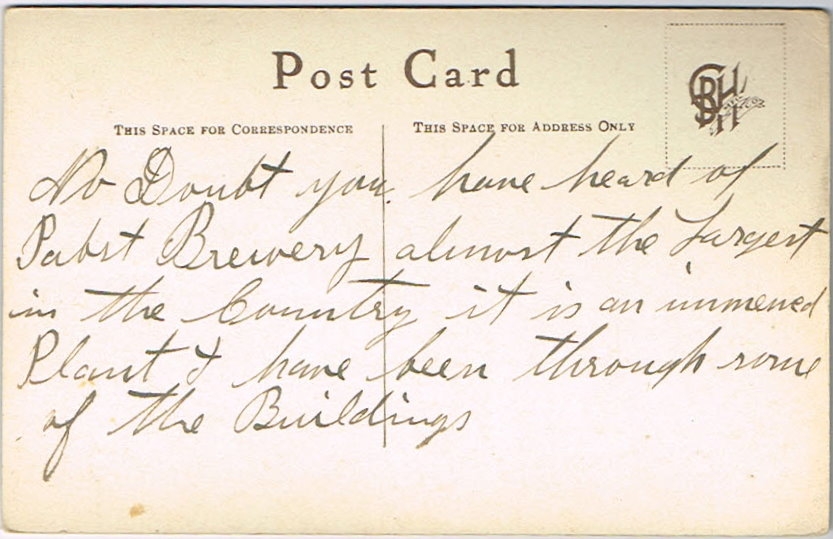 Post Card
THIS SPACE FOR CORRESPONDENCE
THIS SPACE FOR ADDRESS ONLY
No Doubt you have heard of
Pabst Brewery almost the Largest
in the Country it is an immened
Plant I have been through some
of the Buildings